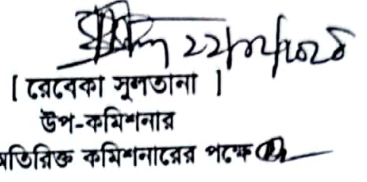 ২২/০২/২০২৪
[ রেবেকা সুলতানা ]
উপ-কমিশনার
অতিরিক্ত কমিশনারের পক্ষে